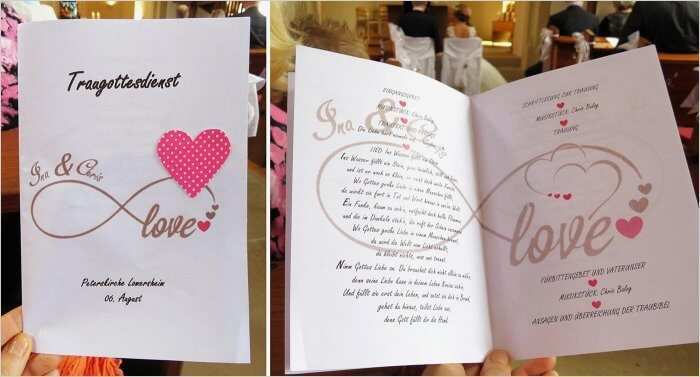 Traugottesdienst
Ina & Chris
love
Peterskirche Lomersheim
06. August
EINGANGSGEBET
MUSIKSTÜCK: Chris Bilay
Ina & C
LIED: Ins Wasser fällt ein Stein
Ins Wasser fällt ein Stein, ganz heimlich, still und leise
und ist er noch so klein, er zieht doch weite Kreise.
Wo Gottes große Liebe in einen Menschen fällt,
da wirkt sie fort in Tat und Wort hinaus in unsre Welt.
Ein Funke, kaum zu seh'n, entfacht doch helle Flammen
und die im Dunkeln steh'n, die ruft der Schein zusammen.
Wo Gottes große Liebe in einem Menschen brennt,
da wird die Welt vom Licht erhellt;
da bleibt nichts, was uns trennt.
Nimm Gottes Liebe an. Du brauchst dich nicht allein zu mühn,
denn seine Liebe kann in deinem Leben Kreise ziehn.
Und füllt sie erst dein Leben, und setzt sie dich in Brand,
gehst du hinaus, teilst Liebe aus,
denn Gott füllt dir die Hand.
SCHRIFTLESUNG ZUR TRAUUNG
MUSIKSTÜCK: Chris Bilay
TRAUUNG
love
FÜRBITTENGEBET UND VATERUNSER
MUSIKSTÜCK: Chris Bilay
ANSAGEN UND ÜBERREICHUNG DER TRAUBIBEL